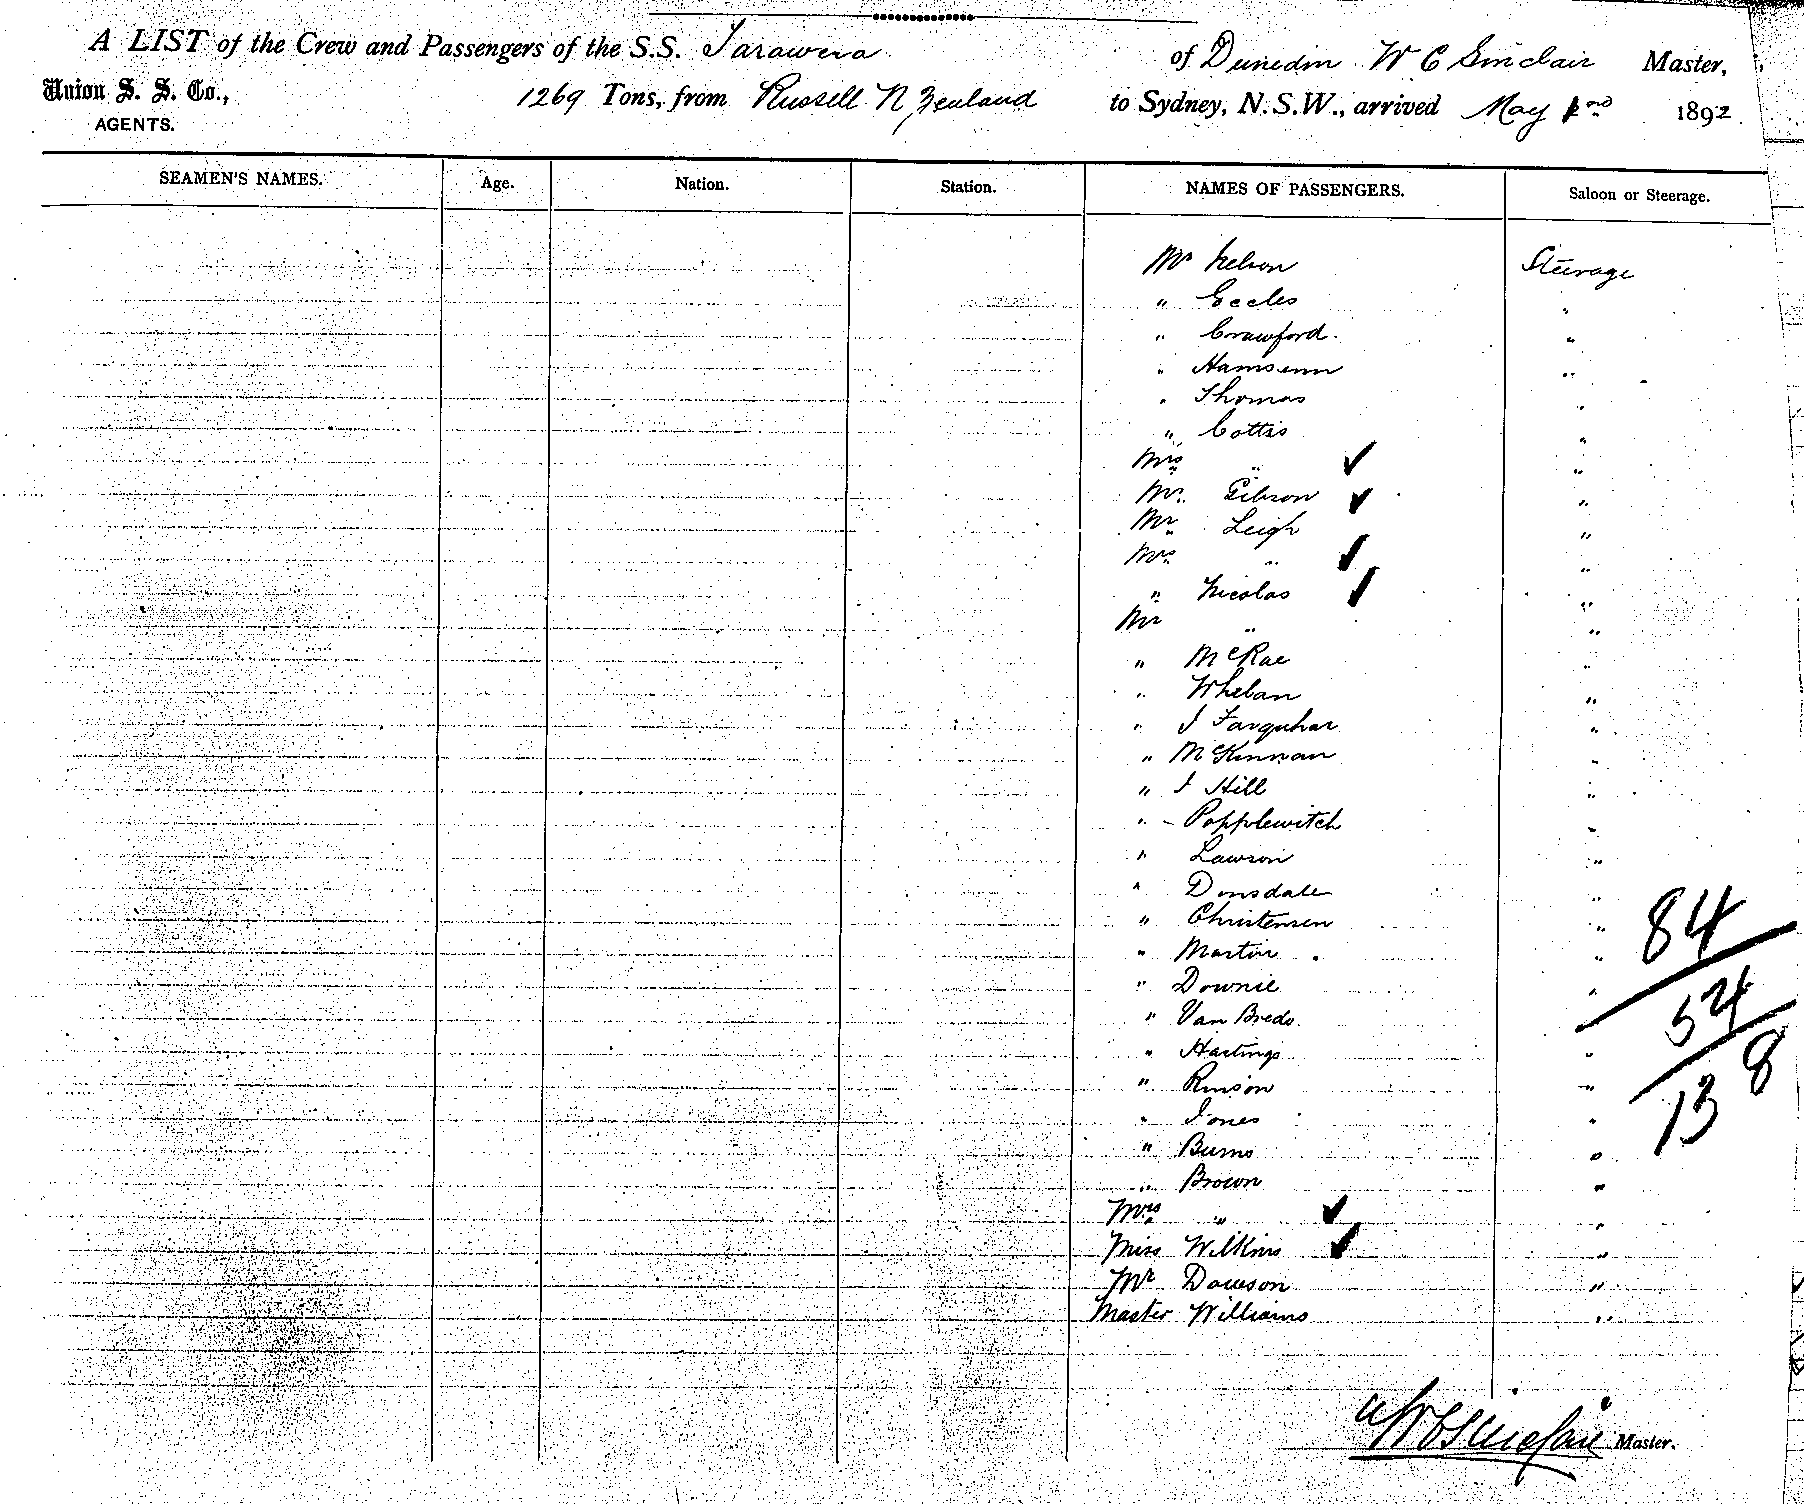 A LIST of the Crew and Passengers of the S.S. Tarawera of Dunedin W C Sinclair Master,
Union S. S. Co., AGENTS. 1269 Tons, from Russell N Zealand to Sydney, N.S.W., arrived May 1892
SEAMEN'S NAMES. Age. Nation. Station. NAMES OF PASSENGERS. Saloon or Steerage.
Mr Nelson Steerage
" Eccles "
" Crawford "
" "
" Thomas "
" Cottis "
Mrs " ✓ "
Mr Gibson ✓ "
Mr Leigh "
Mrs " ✓ "
" Nicolas ✓ "
Mr " "
" McRae "
" Whelan "
" J Farquhar "
" McKinnan "
" J Hill "
" Popplewitch "
" Lawson "
" Donsdale "
" Christensen "
" Martin "
" Downie "
" Van Breda "
" Hastings "
" Rinson "
" Jones "
" Burns "
" Brown "
Mrs " ✓ "
Miss Wilkins ✓ "
Mr Dawson "
Master Williams "
84
54
138
W C Sinclair Master.